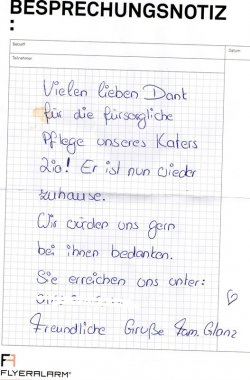 BESPRECHUNGSNOTIZ
:
Betreff
Teilnehmer
Vielen lieben Dank
für die fürsorgliche
Pflege unseres Katers
Zio! Er ist nun wieder
zuhause.
Wir würden uns gern
bei ihnen bedanken.
Sie erreichen uns unter:
Freundliche Gruße Fam. Glanz
FLYERALARM